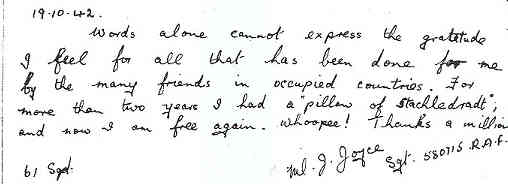 19-10-42.
Words alone cannot express the gratitude
I feel for all that has been done for me
by the many friends in occupied countries. For
more than two years I had a "pillow of stachledradt",
and now I am free again. Whoopee! Thanks a million
61 Sqd. M. J. Joyce Sgt. 580715 R.A.F.